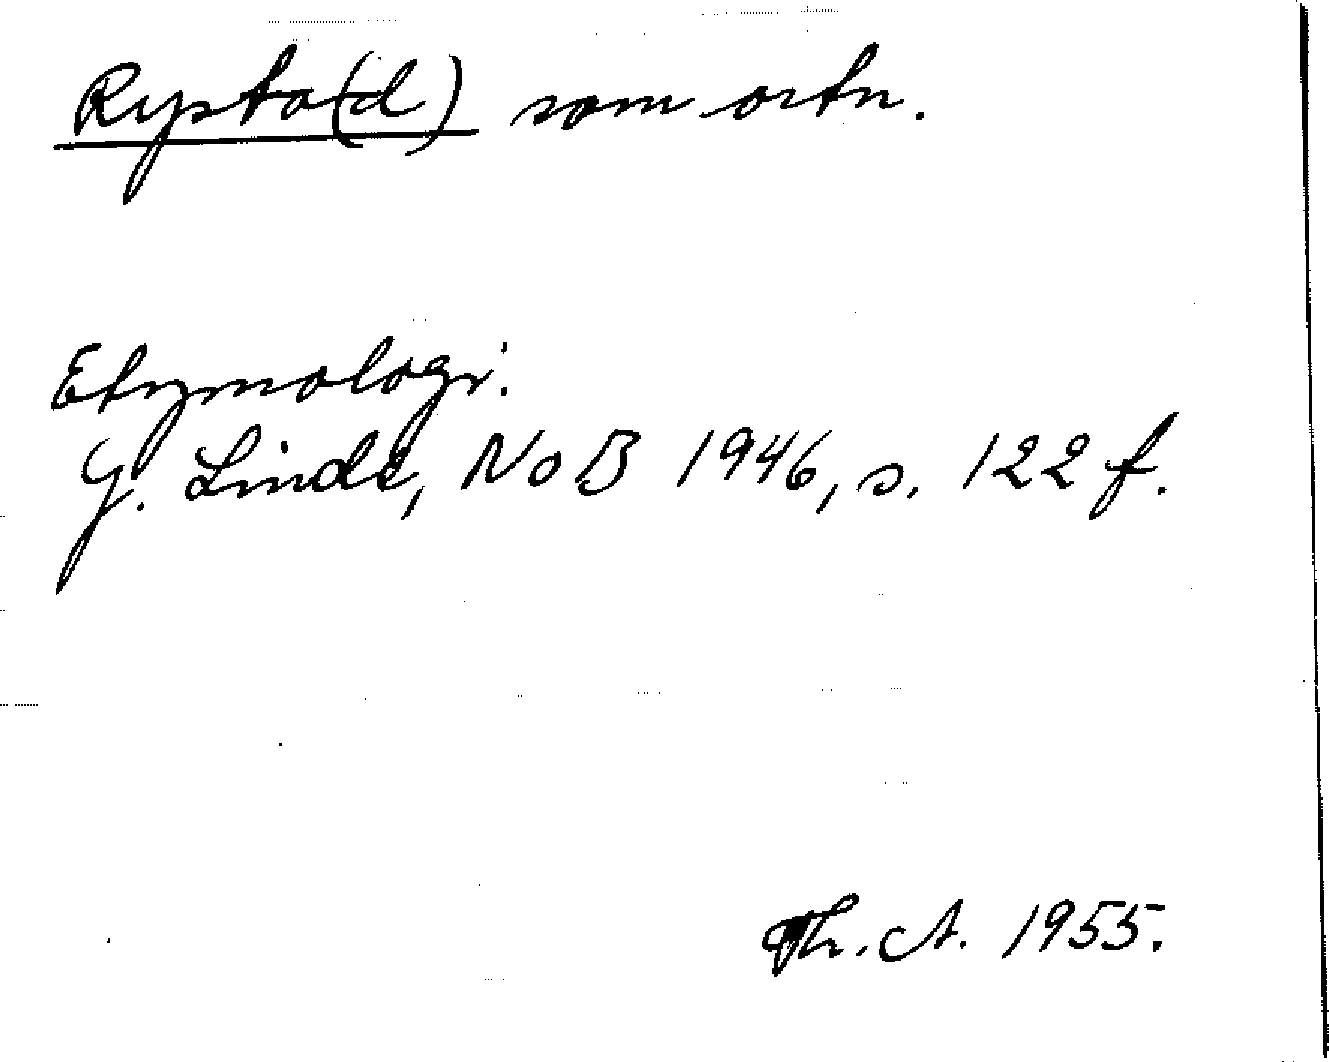 Rysta(d) som ortn.
Etymologi:
G. Linde, NoB 1946, s. 122 f.
Th. A. 1955.